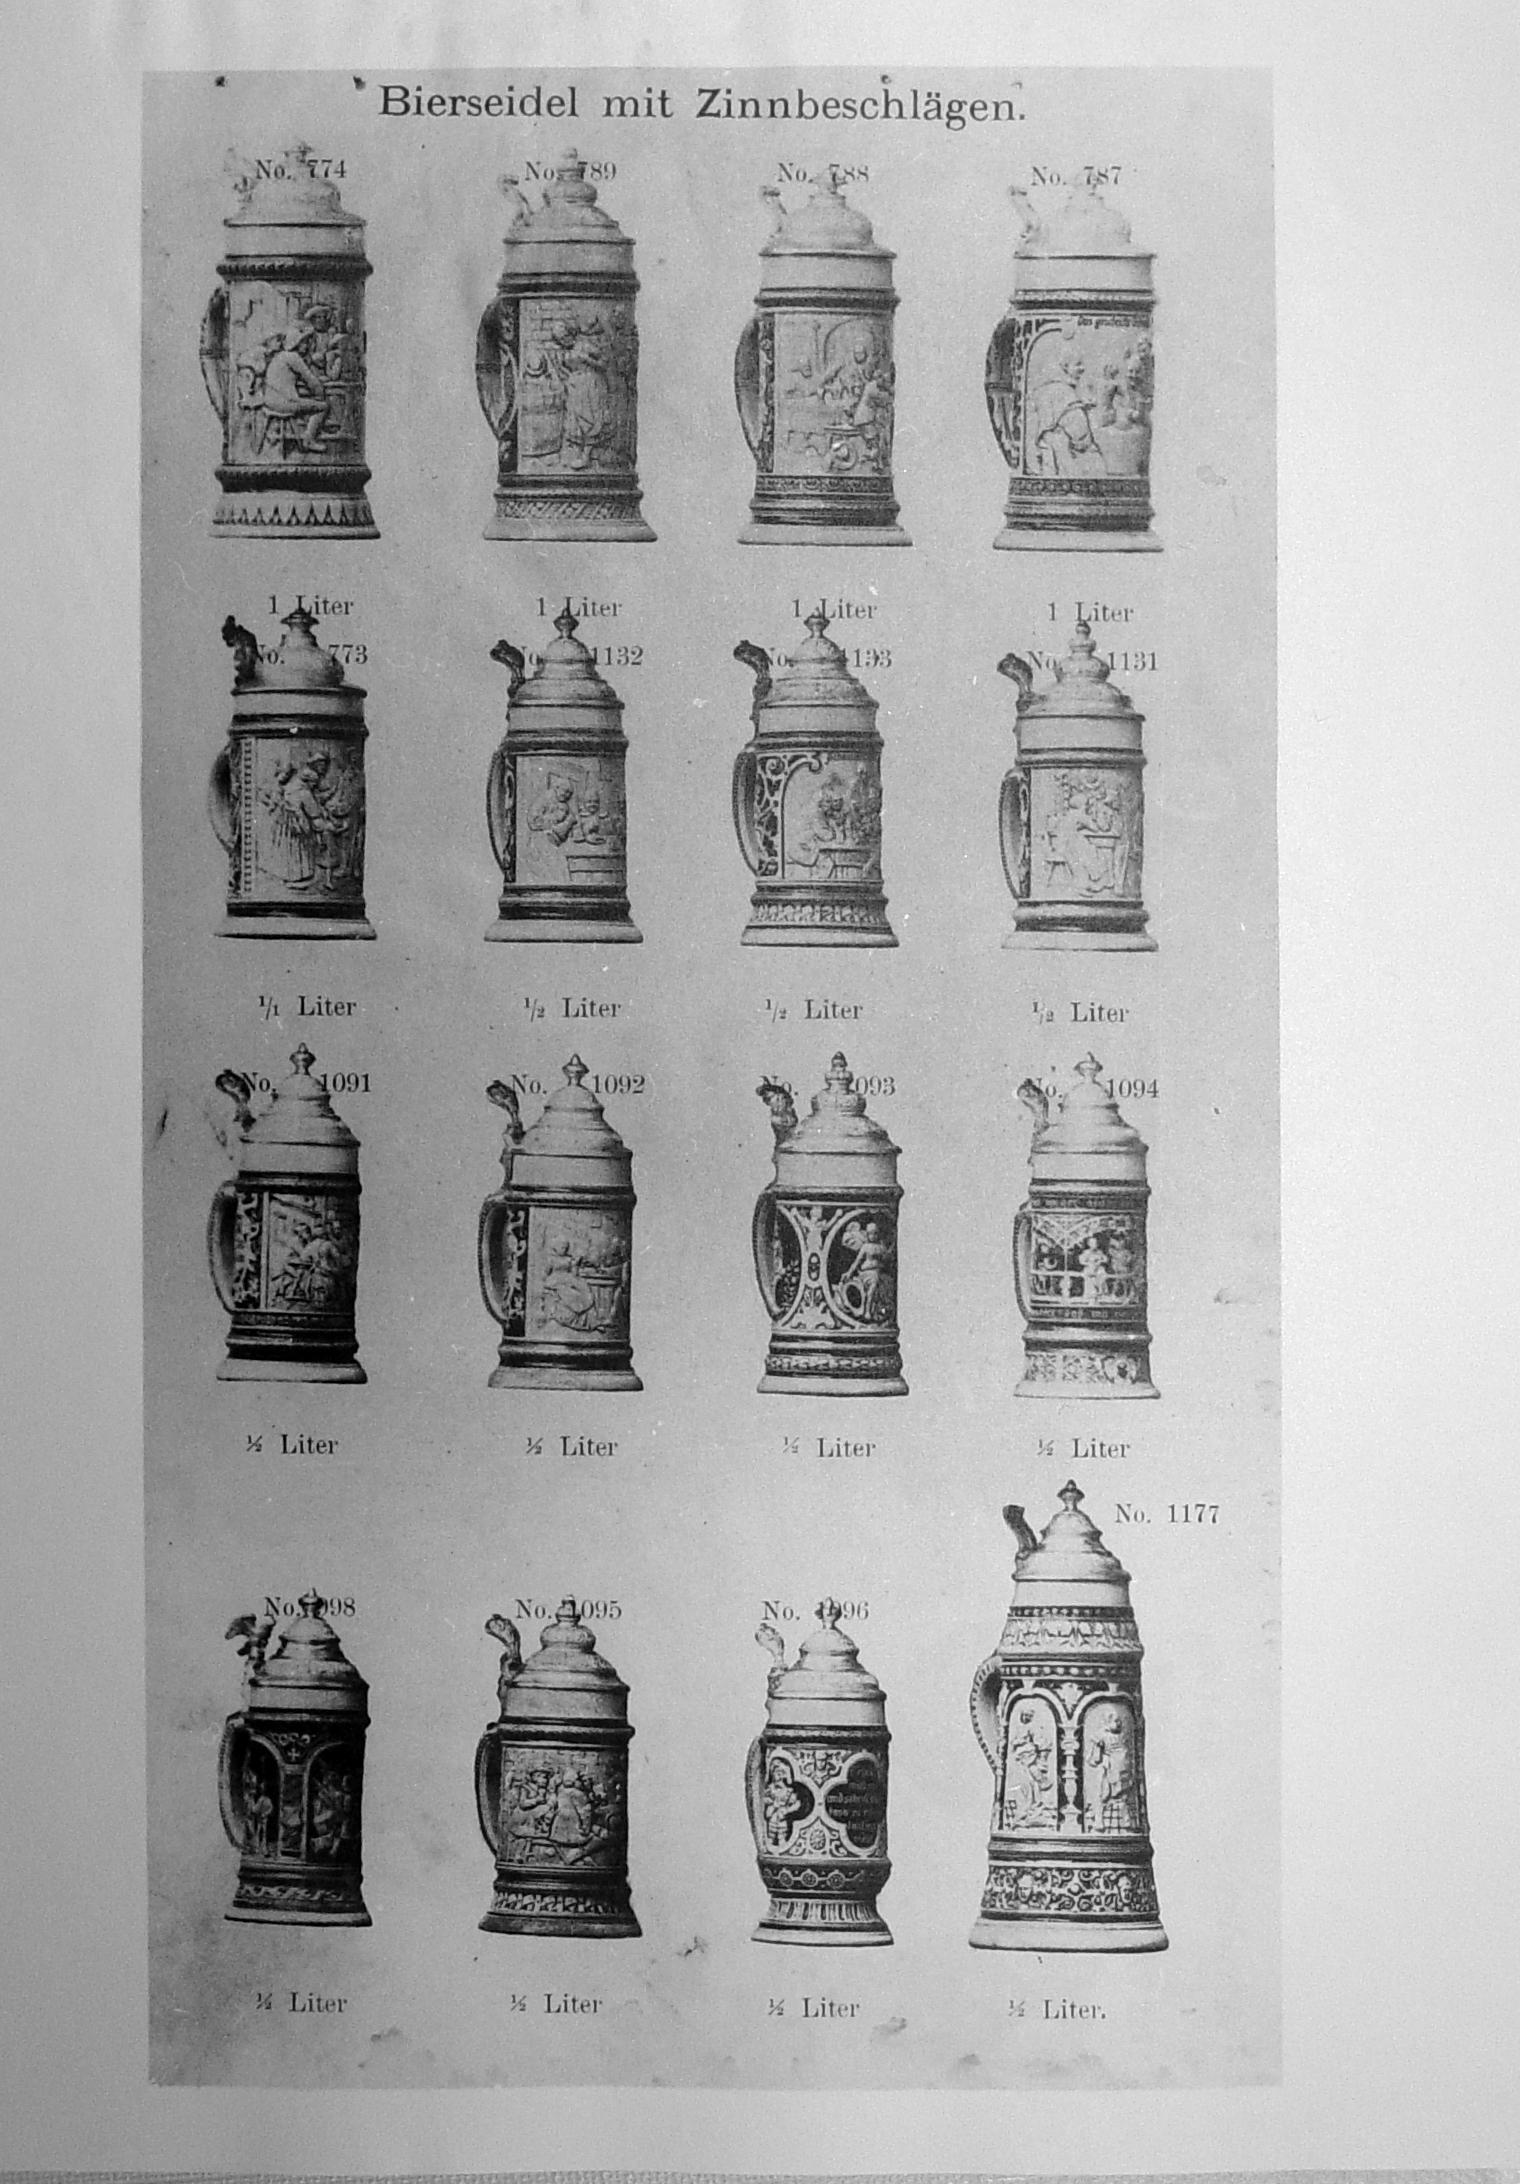 Bierseidel mit Zinnbeschlägen.
No. 774 No. 789 No. 788 No. 787
1 Liter 1 Liter 1 Liter 1 Liter
No. 773 No. 1132 No. 1193 No. 1131
1/1 Liter 1/2 Liter 1/2 Liter 1/2 Liter
No. 1091 No. 1092 No. 1093 No. 1094
½ Liter ½ Liter ½ Liter ½ Liter
No. 1177
No. 1098 No. 1095 No. 1096
½ Liter ½ Liter ½ Liter ½ Liter.